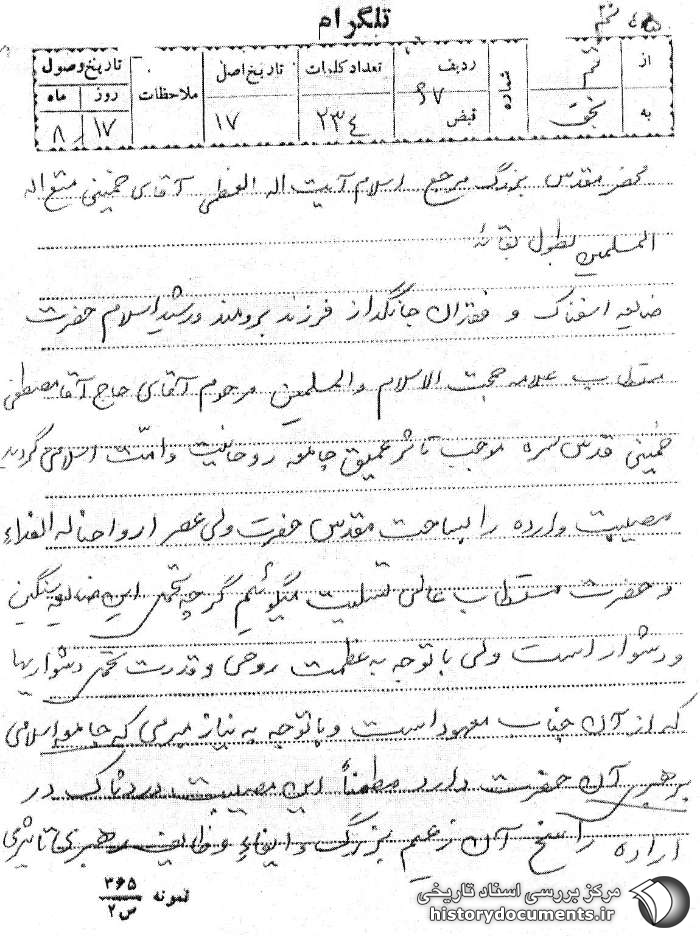 تلگرام
از
قم
به
نجف
شماره
ردیف
۶۷
قبض
تعداد کلمات
۲۳٤
تاریخ اصل
۱۷
ملاحظات
تاریخ وصول
روز
ماه
۱۷
۸
محضر مقدس بزرگ مرجع اسلام آیت اله العظمی آقای خمینی متع اله
المسلمین بطول بقائه
ضایعه اسفناک و فقدان جانگداز فرزند برومند و رشید اسلام حضرت
مستطاب علامه حجت الاسلام والمسلمین مرحوم آقای حاج آقا مصطفی
خمینی قدس سره موجب تاثر عمیق جامعه روحانیت و امّت اسلامی گردید
مصیبت وارده را بساحت مقدس حضرت ولی عصر ارواحنا له الفداء
و حضرت مستطاب عالی تسلیت میگوئیم گر چه تحمل این ضایعه سنگین
و دشوار است ولی با توجه به عظمت روحی و قدرت تحمل دشواریها
که از آن جناب معهود است و با توجه به نیاز مبرمی که جامعه اسلامی
برهبری آن حضرت دارد مطمئناً این مصیبت دردناک در
اراده راسخ آن زعیم بزرگ و ایفاء وظایف رهبری تاثیری
نمونه ۳۶۵
س۲
مرکز بررسی اسناد تاریخی
historydocuments.ir